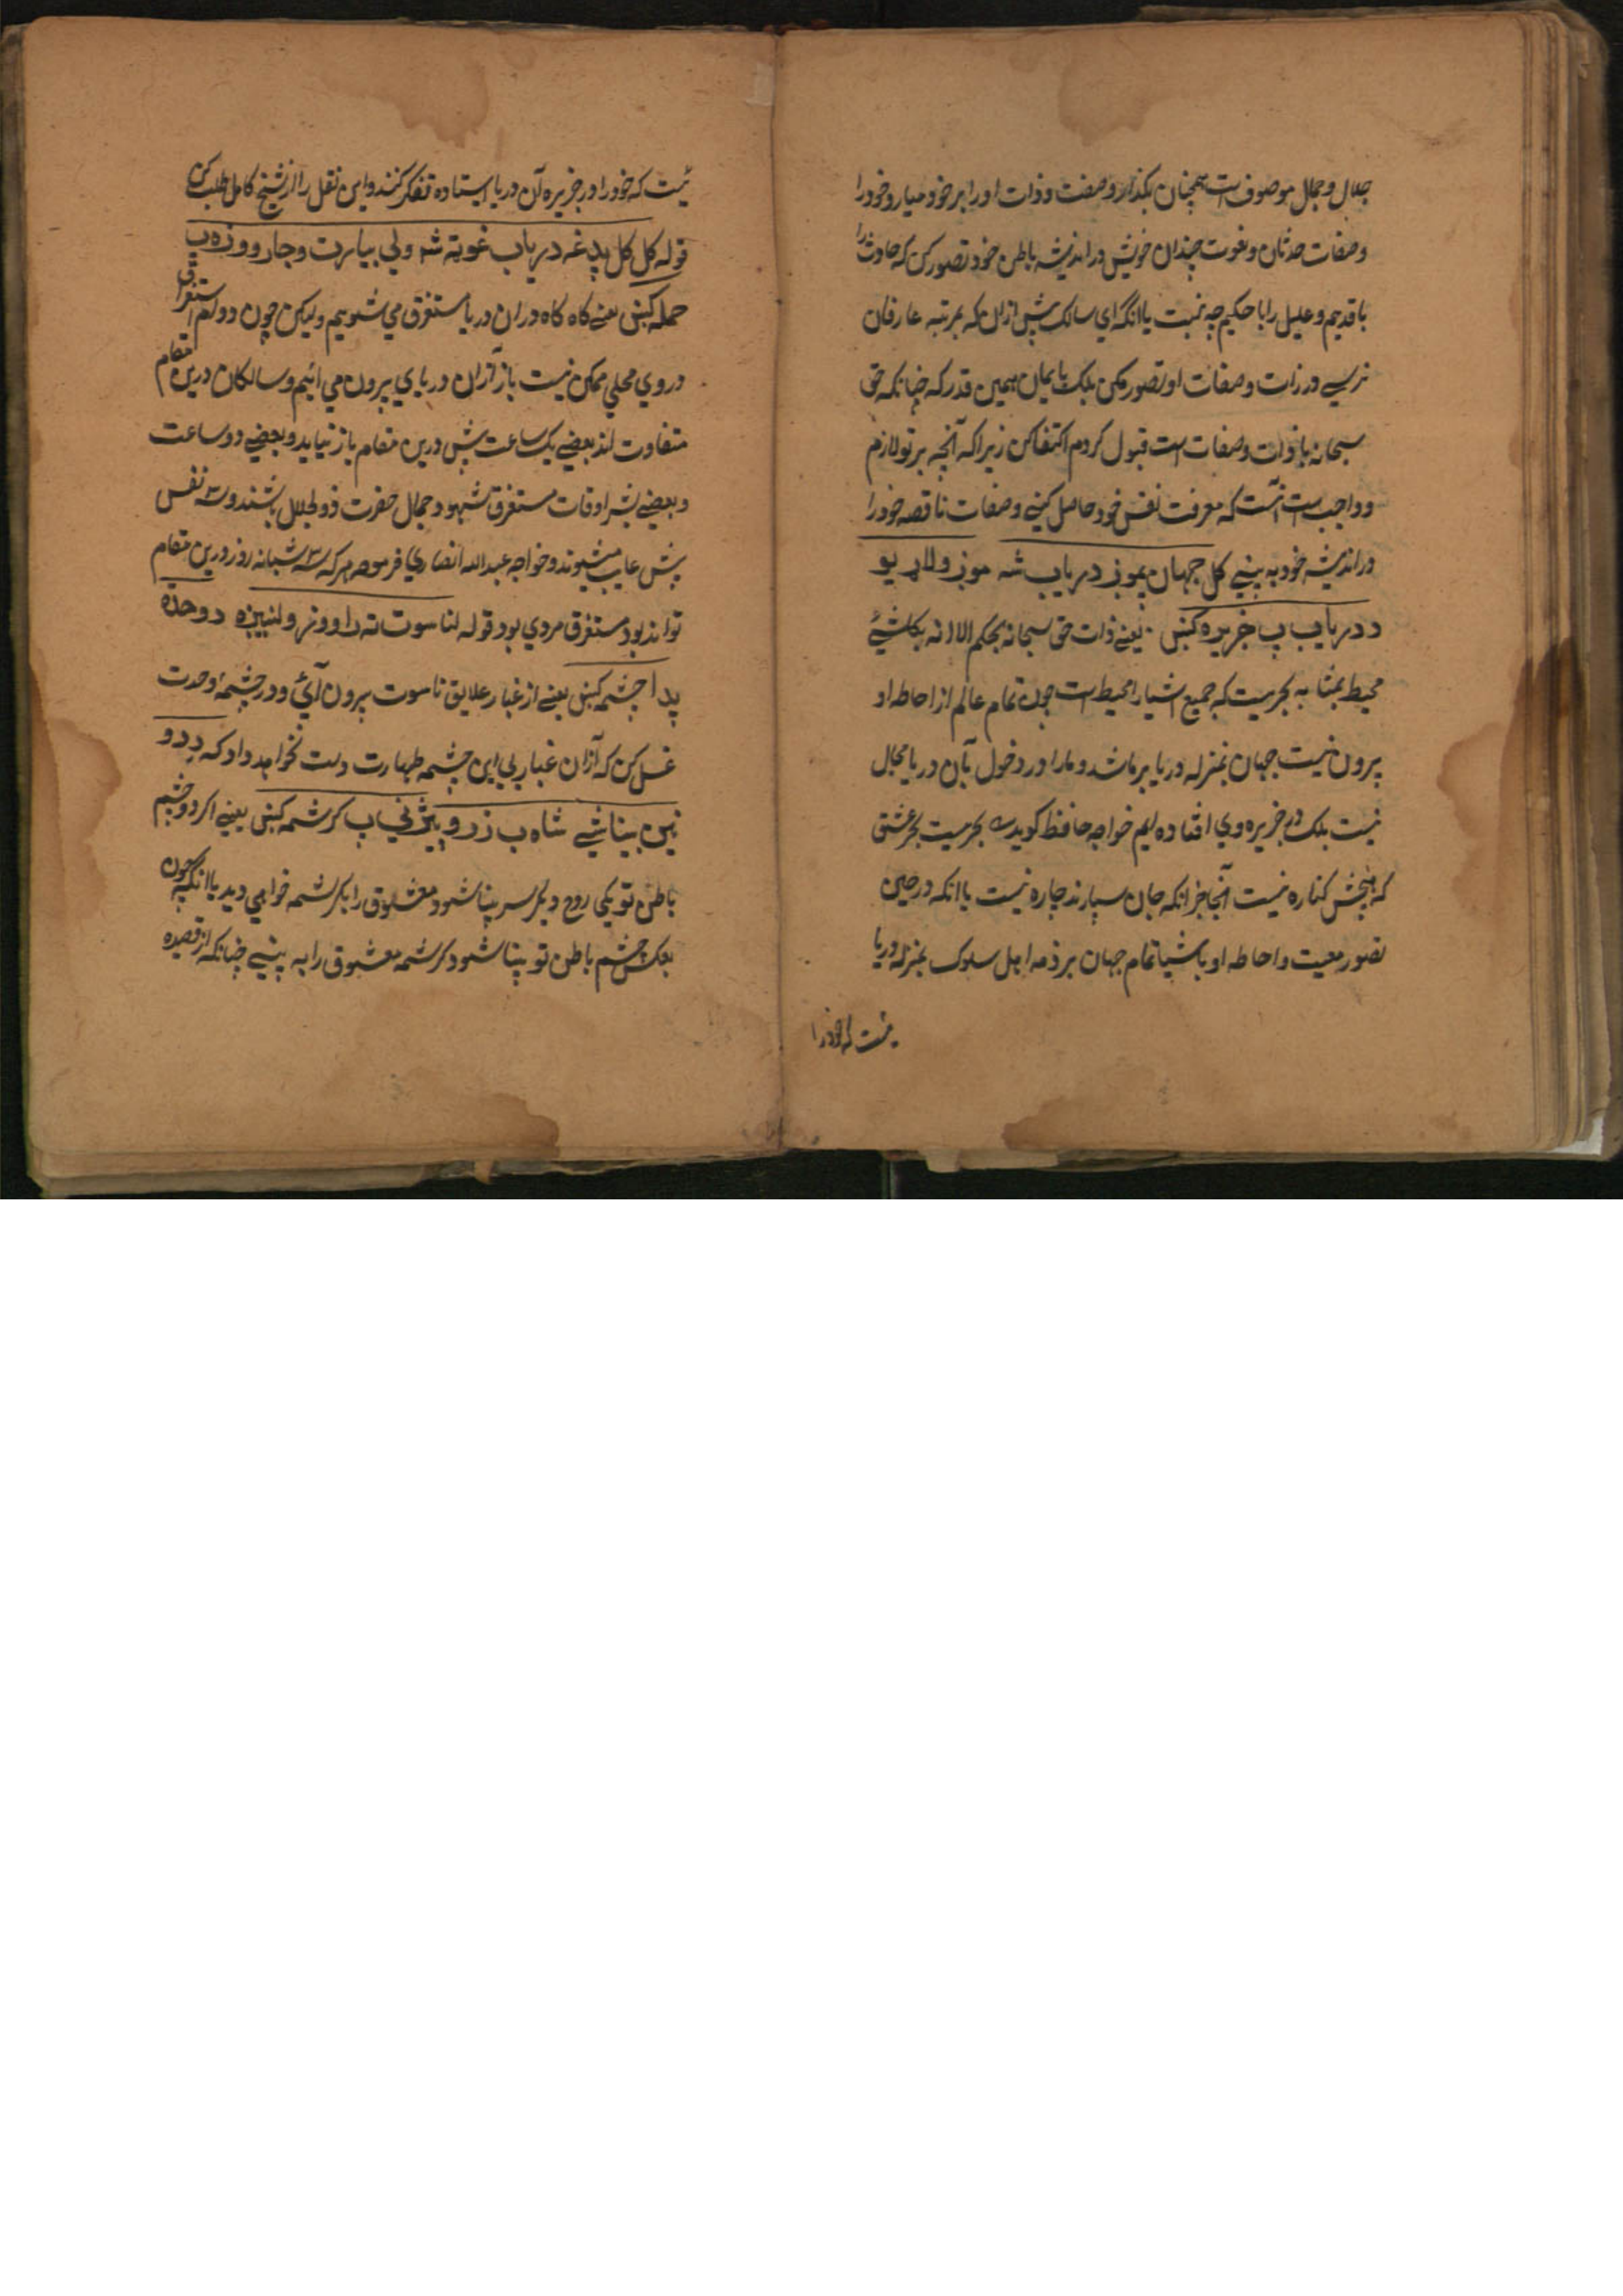 جلال و جمال موصوف است همچنان بگذار و صفت و ذات او را بر خود میار و خود را
و صفات حدثان و نعوت چندان خویش در اندیشه باطن خود تصور کن که حادث را
با قدیم و علیل را با حکیم چه نسبت یا آنکه ای سالک پیش ازان که بمرتبه عارفان
نرسی در ذات و صفات او تصور مکن بلک بایمان همین قدر که چنانکه حق
سبحانه با ذات و صفات است قبول کردم اکتفا کن زیرا که آنچه بر تو لازم
و واجب است آنست که معرفت نفس خود حاصل کنی و صفات ناقصه خود را
در اندیشه خود به بینی کل جهان یموز دریاب شه موز ولاړ یو
د دریاب پ خریره کښی یعنی ذات حق سبحانه بحکم الا انه بکل شیٔ
محیط بمثابه بحریست که جمیع اشیا را محیط است چون تمام عالم از احاطه او
بیرون نیست جهان بمنزله دریا بر ما شد و ما را در دخول بآن دریا مجال
نیست بلک در خریره وی افتاده ایم خواجه حافظ کوید بحریست بحر عشق
که هیچش کناره نیست آنجا جز آنکه جان سپارند چاره نیست یا آنکه در حین
تصور معیت و احاطه او باشیا تمام جهان بر ذمه اهل سلوک بمنزله دریا
یست که خود را
یست که خود را در خریره آن دریا ایستاده تفکر کنند و این نقل را از شیخ کامل طلب کن
قوله کل کل پدغه دریاب غوته شه ولی بیا برت و جار ووزه پ
حمله کښی یعنی کاه کاه دران دریا مستغرق می شویم ولیکن چون دوام استغراق
در وی محلی ممکن نیست باز ازان دریای بیرون می ائیم و سالکان درین مقام
متفاوت اند بعضی یک ساعت پیش درین مقام باز نیاید و بعضی دو ساعت
و بعضی بیشتر اوقات مستغرق شهود جمال حضرت ذو الجلال باشند و سه نفس
پیش غایب میشوند و خواجه عبدالله انصاری فرموده هر که سه شبانه روز درین مقام
تواند بود مستغرق مردی بود قوله لناسوت نه راووتر ولنبیزه د وحدة
پدا چشمه کښی یعنی از غبار علایق ناسوت بیرون آئی و در چشمهٔ وحدت
غسل کن که آزان غبار بی این چشمه طهارت دست نخواهد داد که د دو
نین بینا شی شاه ب زر و پیژنی پ کرشمه کښی یعنی اکر دو چشم
باطن تو یکی روح دیکر سر بینا شود معشوق را بکرشمه خواهی دید یا آنکه چون
بعکس چشم باطن تو بینا شود کرشمه معشوق را به بینی چنانکه از قصیده